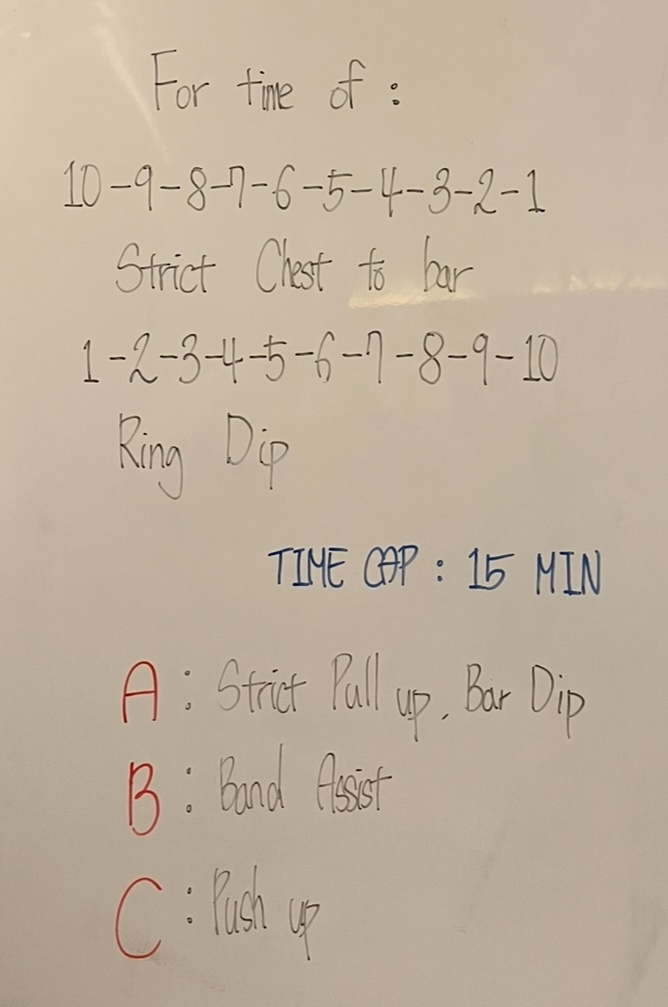 For time of :
10-9-8-7-6-5-4-3-2-1
Strict Chest to bar
1-2-3-4-5-6-7-8-9-10
Ring Dip
TIME CAP : 15 MIN
A : Strict Pull up, Bar Dip
B : Band Assist
C : Push up